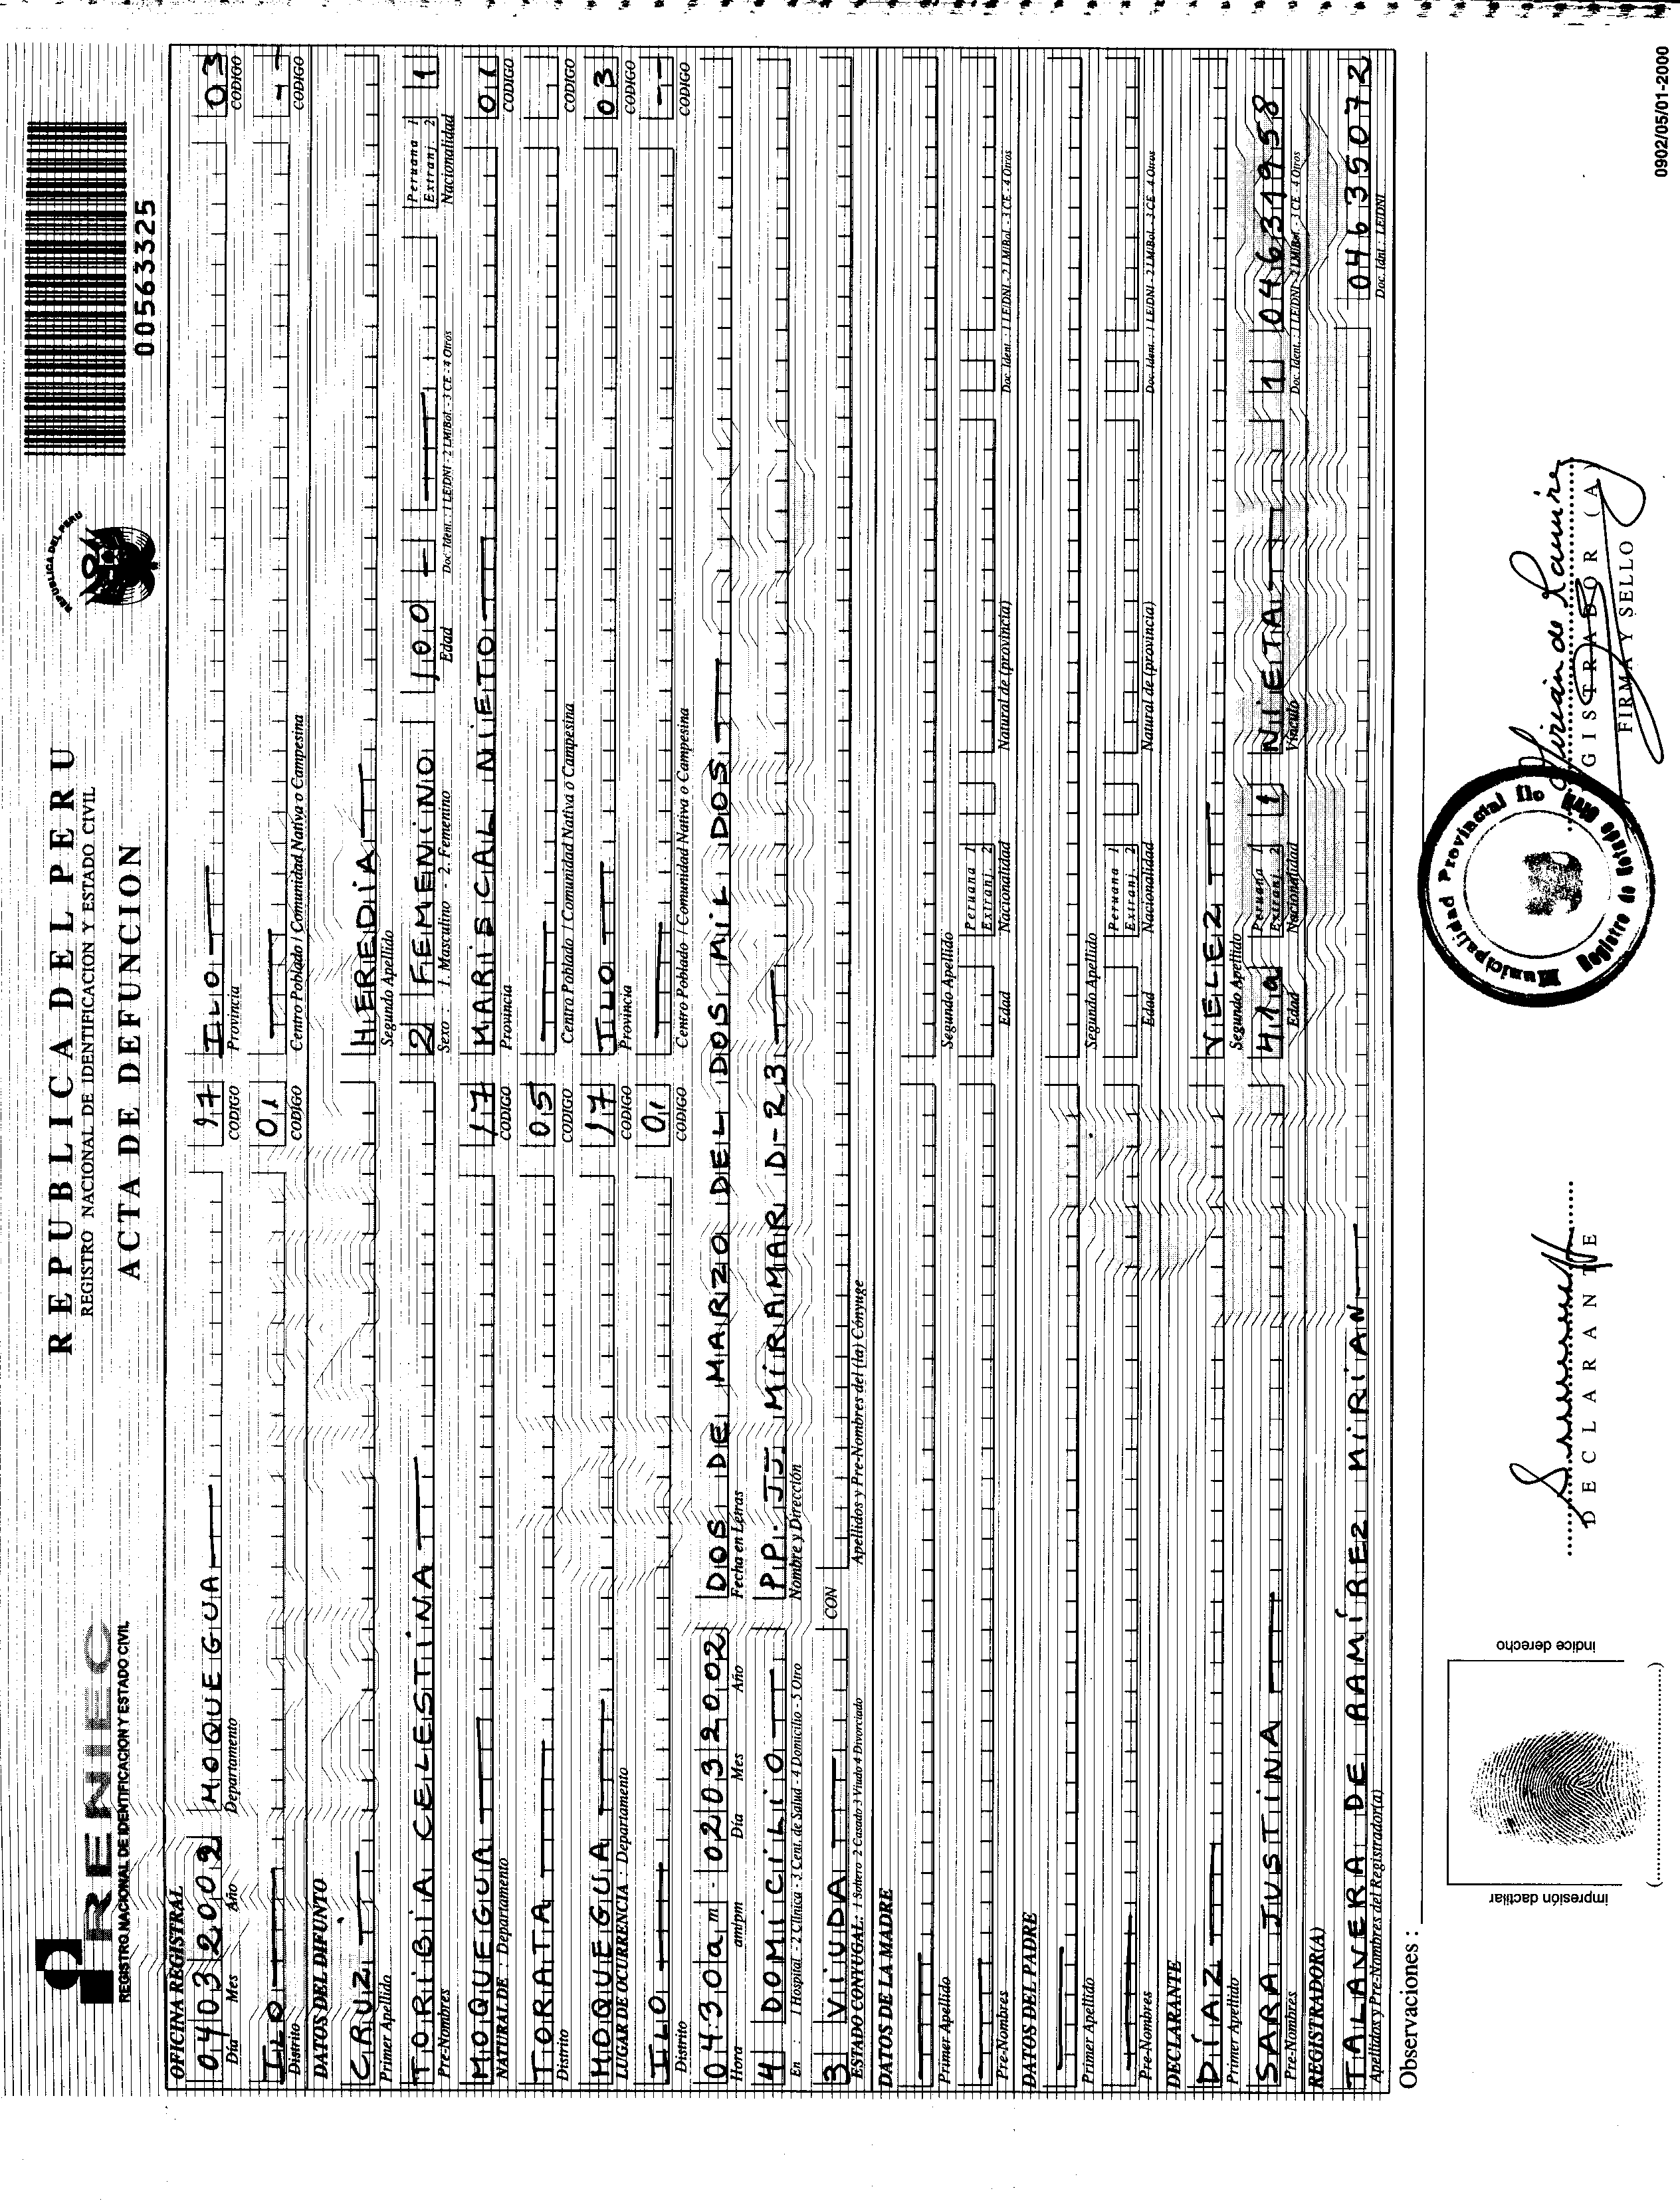 RENIEC
REGISTRO NACIONAL DE IDENTIFICACION Y ESTADO CIVIL
REPUBLICA DEL PERU
REGISTRO NACIONAL DE IDENTIFICACION Y ESTADO CIVIL
ACTA DE DEFUNCION
REPUBLICA DEL PERU
00563325
OFICINA REGISTRAL
04 03 2002 MOQUEGUA 17 ILO 03
Día Mes Año Departamento CODIGO Provincia CODIGO
ILO 01 --
Distrito CODIGO Centro Poblado / Comunidad Nativa o Campesina CODIGO
DATOS DEL DIFUNTO
CRUZ HEREDIA
Primer Apellido Segundo Apellido
TORIBIA CELESTINA 2 FEMENINO 100 - Peruana 1 Extranj. 2 1
Pre-Nombres Sexo : 1. Masculino - 2. Femenino Edad Doc. Ident. : 1 LE/DNI - 2 LM/Bol. - 3 CE - 4 Otros Nacionalidad
MOQUEGUA 17 MARISCAL NIETO 01
NATURAL DE : Departamento CODIGO Provincia CODIGO
TORATA 05
Distrito CODIGO Centro Poblado / Comunidad Nativa o Campesina CODIGO
MOQUEGUA 17 ILO 03
LUGAR DE OCURRENCIA : Departamento CODIGO Provincia CODIGO
ILO 01 --
Distrito CODIGO Centro Poblado / Comunidad Nativa o Campesina CODIGO
04 30 am - 02 03 2002 DOS DE MARZO DEL DOS MIL DOS
Hora am/pm Día Mes Año Fecha en Letras
4 DOMICILIO P.P. JJ. MIRAMAR D-23
En : 1 Hospital - 2 Clínica - 3 Cent. de Salud - 4 Domicilio - 5 Otro Nombre y Dirección
3 VIUDA CON
ESTADO CONYUGAL: 1 Soltero 2 Casado 3 Viudo 4 Divorciado Apellidos y Pre-Nombres del (la) Cónyuge
DATOS DE LA MADRE
Primer Apellido Segundo Apellido
Peruana 1 Extranj. 2
Pre-Nombres Edad Nacionalidad Natural de (provincia) Doc. Ident. : 1 LE/DNI - 2 LM/Bol. - 3 CE - 4 Otros
DATOS DEL PADRE
Primer Apellido Segundo Apellido
Peruana 1 Extranj. 2
Pre-Nombres Edad Nacionalidad Natural de (provincia) Doc. Ident. : 1 LE/DNI - 2 LM/Bol. - 3 CE - 4 Otros
DECLARANTE
DÍAZ VELEZ
Primer Apellido Segundo Apellido
SARA JUSTINA 41a Peruana 1 Extranj. 2 1 NIETA 1 046319958
Pre-Nombres Edad Nacionalidad Vínculo Doc. Ident. : 1 LE/DNI - 2 LM/Bol. - 3 CE - 4 Otros
REGISTRADOR(A)
TALAVERA DE RAMÍREZ MIRIAN 04635072
Apellidos y Pre-Nombres del Registrador(a) Doc. Idnt : LE/DNI
Observaciones :
impresión dactilar
índice derecho
(....................)
DECLARANTE
Municipalidad Provincial Ilo
Registro de Estado Civil
Mirian de Ramirez
REGISTRADOR (A)
FIRMA Y SELLO
0902/05/01-2000